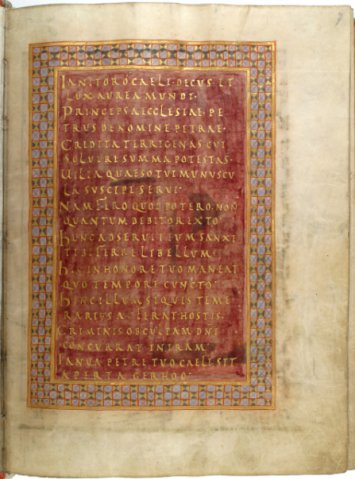 IANITOR O CAELI· DECUS ET
LUX AUREA MUNDI·
PRINCEPS AECCLESIAE· PE
TRUS DE NOMINE PETRAE·
CREDITA TERRIGENAS CUI
SOLUERE SUMMA POTESTAS·
UILIA QUAESO TUI MUNUSCU
LA SUSCIPE SERUI·
NAM FERO QUOD POTERO· NON
QUANTUM DEBITOR EXTO·
HUNC AD SERUITIUM SANXI
TIBI FERRE LIBELLUM·
HIC IN HONORE TUO MANEAT
QUO TEMPORE CUNCTO·
HINC ILLUM SI QUIS TEME
RARIUS HOSTIS·
CRIMINIS OB CULPAM DNI
CONCURRAT IN IRAM·
IANUA PETRE TUO CAELI SIT
APERTA GERHOO·